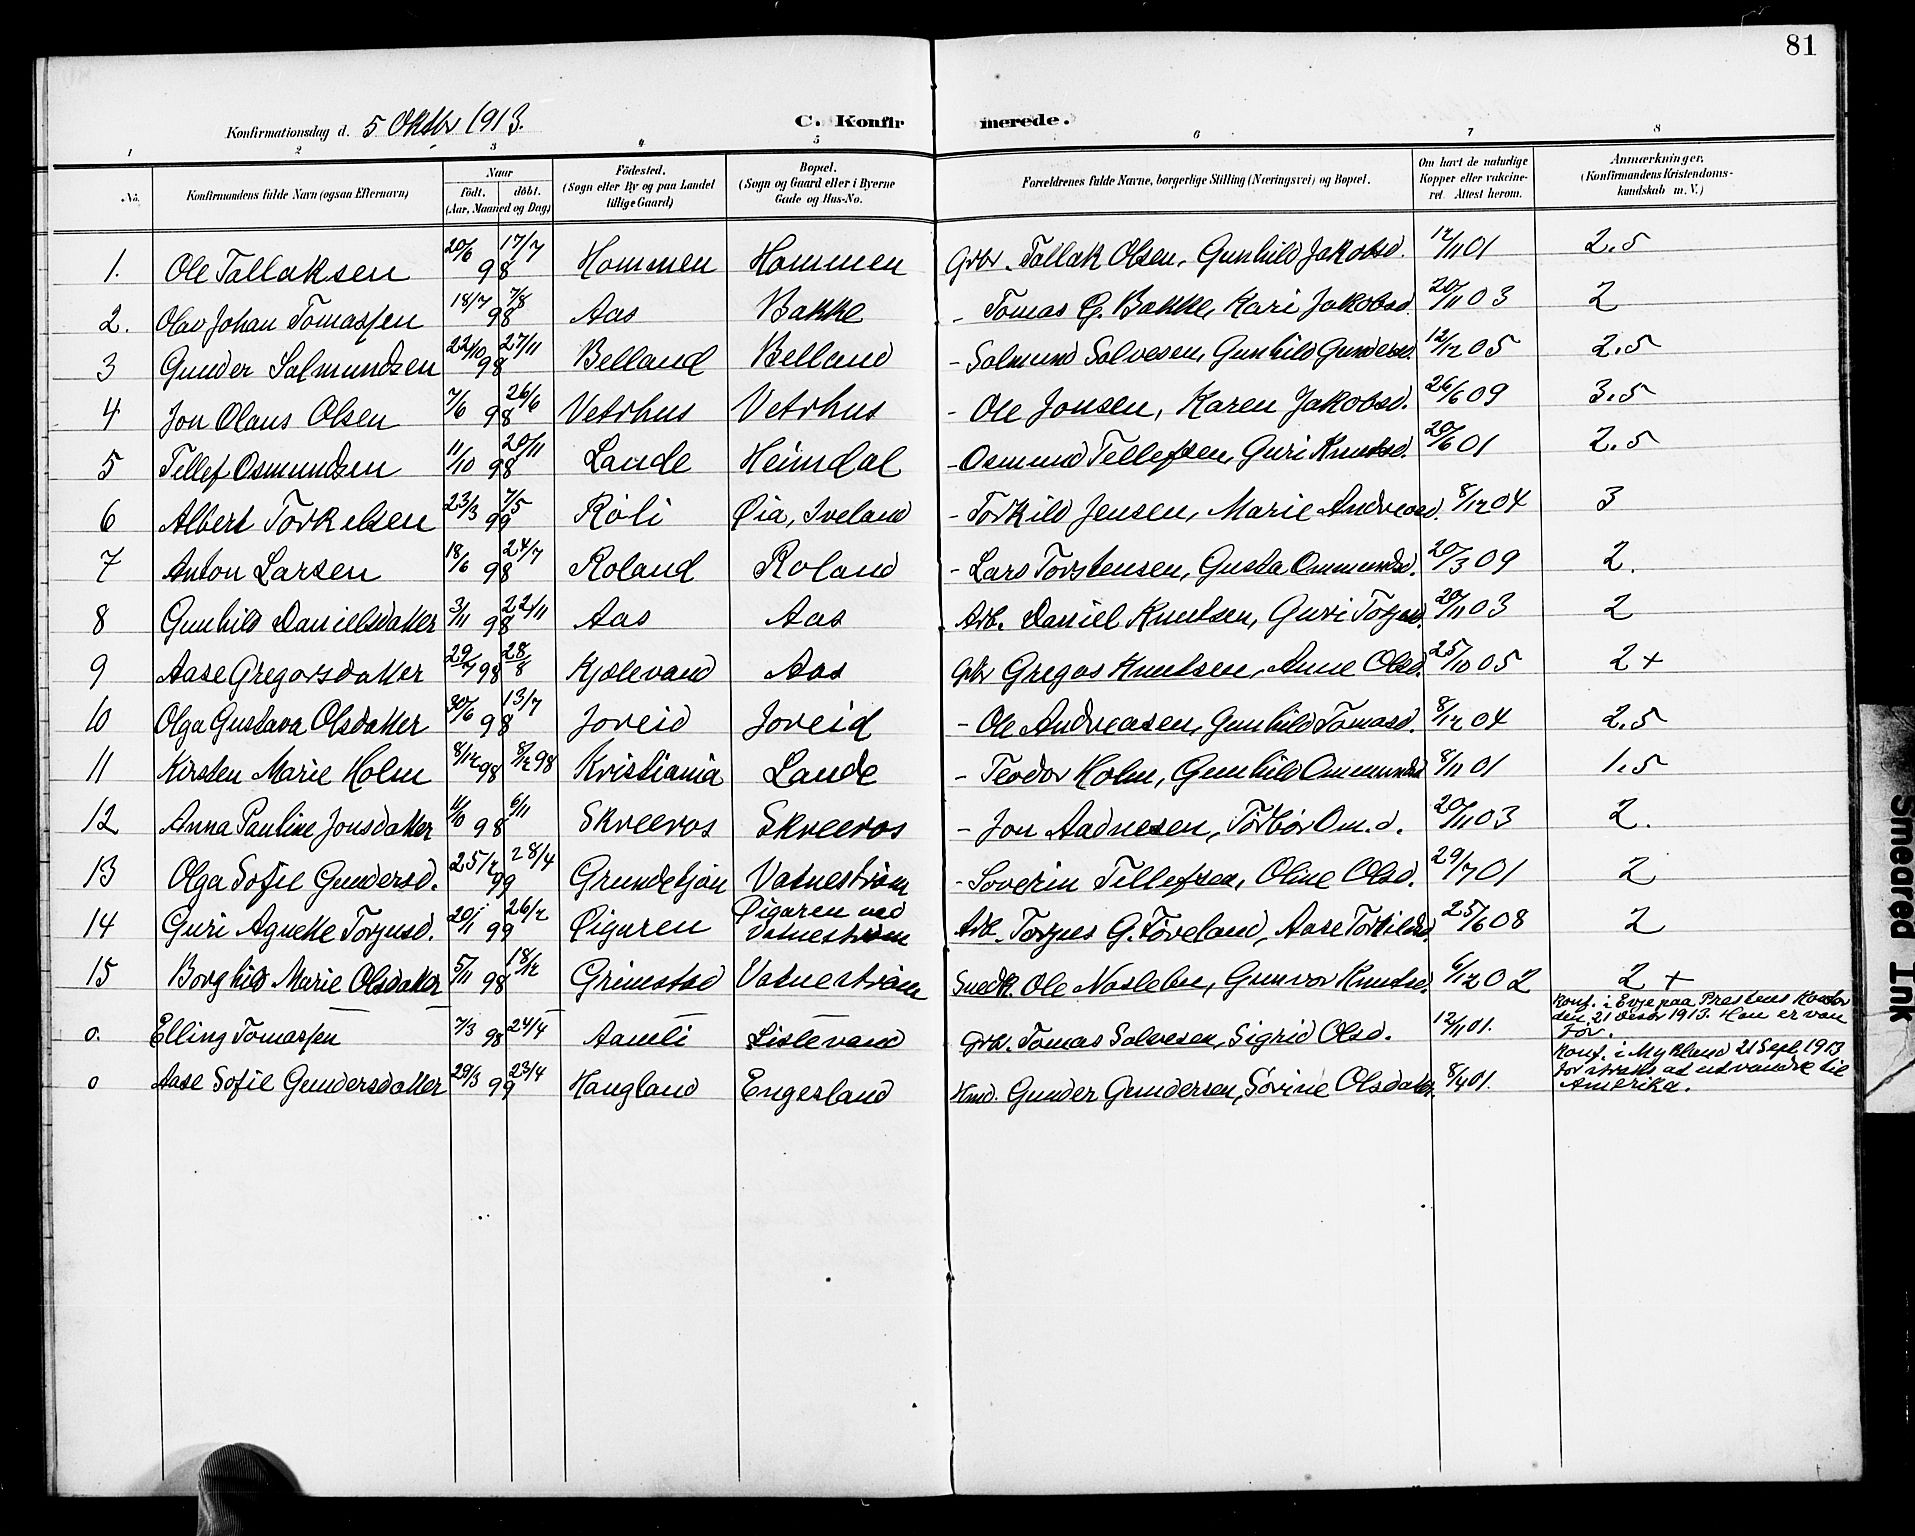 81
Konfirmationsdag d. 5 Oktbr 1913.
C. Konfirmerede.
1 2 3 4 5 6 7 8
No. Konfirmandens fulde Navn (ogsaa Efternavn) Naar födt. döbt. (Aar, Maaned og Dag) Födested. (Sogn eller By og paa Landet tillige Gaard) Bopæl. (Sogn og Gaard eller i Byerne Gade og Hus-No. Forældrenes fulde Navne, borgerlige Stilling (Næringsvei) og Bopæl. Om havt de naturlige Kopper eller vakcineret. Attest herom. Anmærkninger, (Konfirmandens Kristendomskundskab m. V.)
1. Ole Tallaksen 20/6 98 17/7 Hommen Hommen Grbr. Tallak Olsen, Gunhild Jakobsd. 12/11 01 2.5
2. Olav Johan Tomassen 18/7 98 7/8 Aas Bakke - Tomas G. Bakke, Kari Jakobsd. 20/11 03 2
3 Gunder Salmundsen 22/10 98 27/11 Belland Belland - Salmund Salvesen, Gunhild Gundersd. 12/12 05 2.5
4 Jon Olaus Olsen 7/6 98 26/6 Vetrhus Vetrhus - Ole Jonsen, Karen Jakobsd. 26/6 09 3.5
5 Tellef Osmundsen 11/10 98 20/11 Lande Heimdal - Osmund Tellefsen, Guri Knutsd. 20/6 01 2.5
6 Albert Torkelsen 23/3 99 7/5 Röli Øia, Iveland - Torkild Jensen, Marie Andreasd. 8/12 04 3
7 Anton Larsen 18/6 98 24/7 Roland Roland - Lars Torstensen, Gusta Ommundsd. 20/3 09 2.
8 Gunhild Danielsdatter 3/11 98 22/11 Aas Aas Arb. Daniel Knutsen, Guri Torjusd. 20/11 03 2
9 Aase Gregorsdatter 29/7 98 28/8 Kjølevand Aas Gbr Gregos Knutsen, Anne Olsd. 25/10 05 2 +
10 Olga Gustava Olsdatter 30/6 98 13/7 Joveid Joveid - Ole Andreasen, Gunhild Tomasd. 8/12 04 2.5
11 Kirsten Marie Holm 8/12 98 8/12 98 Kristiania Lande - Teodor Holm, Gunhild Ommundsd 8/11 01 1.5
12 Anna Pauline Jonsdatter 11/10 98 6/11 Skreeros Skreeros - Jon Aadnesen, Torbor Om.d. 20/11 03 2.
13 Olga Sofie Gundersd. 25/2 99 28/4 Grundetjøn Vatneström - Soverin Tellefsen, Oline Olsd. 29/7 01 2
14 Guri Agnette Torjusd. 20/1 99 26/2 Øigaren Øigaren ved Vatneström Arb. Torjus G. Töveland, Aase Torkildsd. 25/6 08 2
15 Borghild Marie Olsdatter 5/11 98 18/12 Grimstad Vatneström Snedk. Ole Naslebu, Gunvor Knutsd. 6/12 02 2 +
o. Elling Tomassen 7/3 98 24/4 Aamli Lislevand Grbr. Tomas Salvesen, Sigrid Olsd. 12/11 01. Konf. i Evje paa Prestens Kontor den 21 desbr 1913. Han er van för.
o Aase Sofie Gundersdatter 29/3 99 23/4 Haugland Engesland Hmd. Gunder Gundersen, Sörine Olsdatter. 8/4 01. Konf. i Mykland 21 Sept. 1913 for straks at udvandre til Amerika.
Smeared Ink